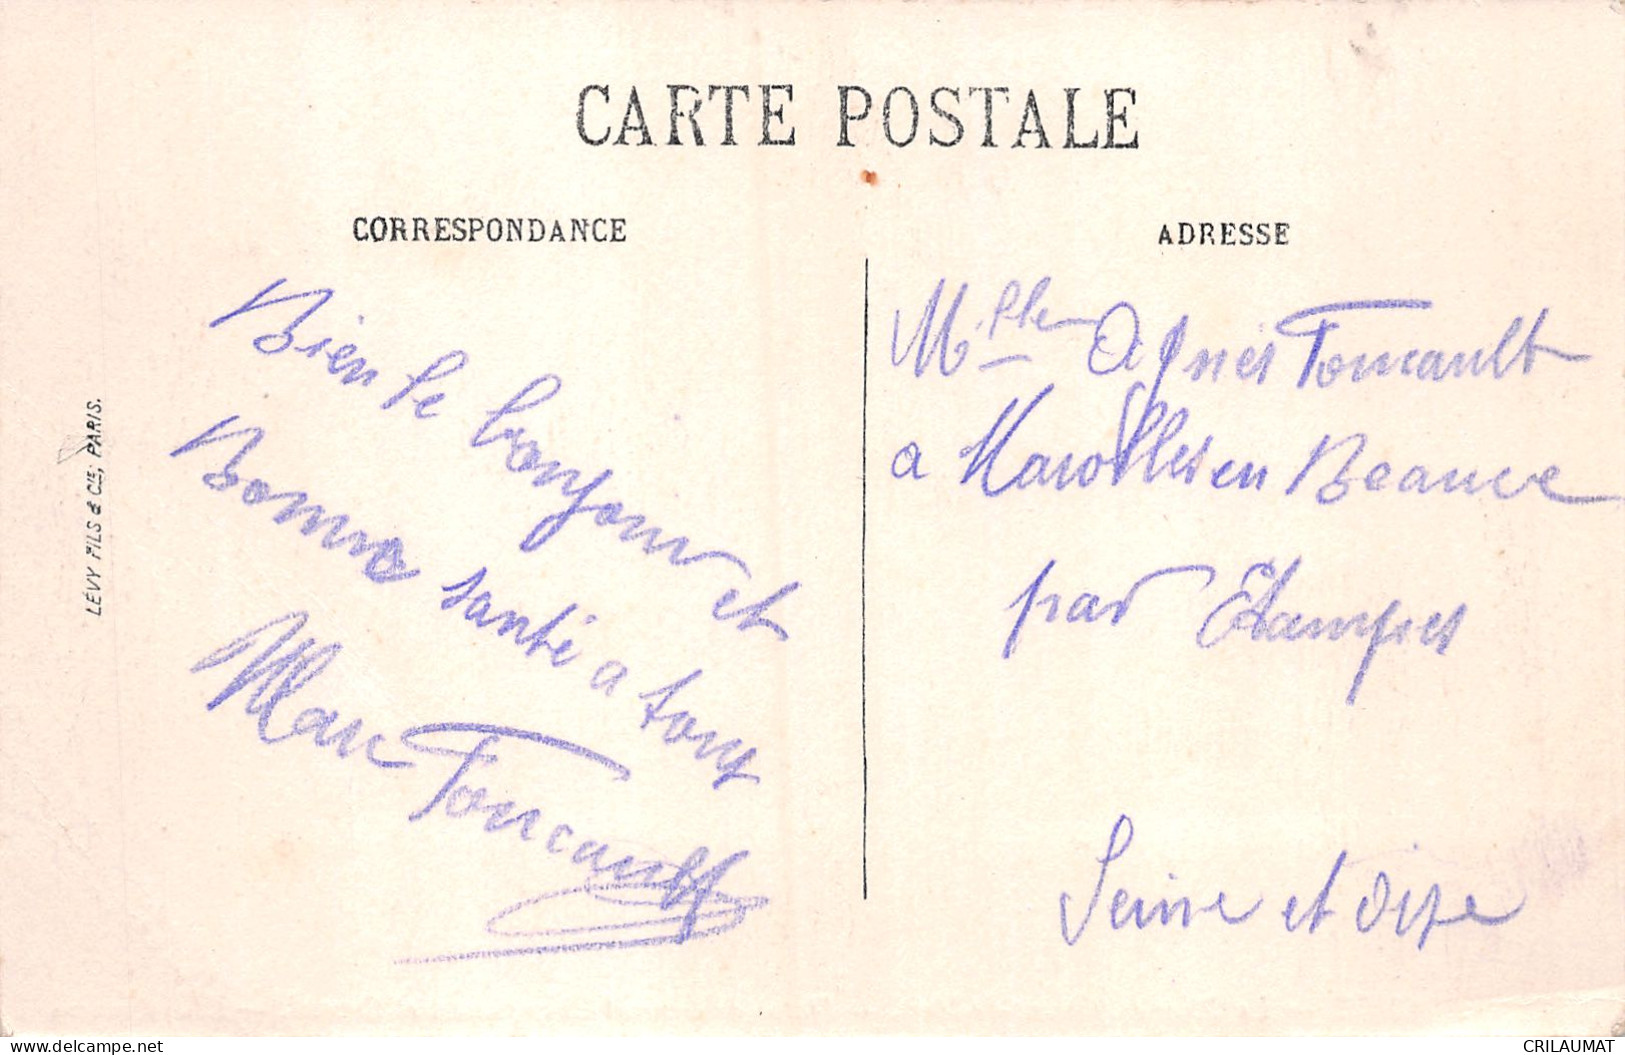 CARTE POSTALE
CORRESPONDANCE
ADRESSE
Bien le bonjour et
Bonne santé a tous
Marc Foucault
Mlle Agnès Foucault
a Marolles en Beauce
par Etampes
Seine et Oise
LÉVY FILS & Cie, PARIS.
www.delcampe.net
CRILAUMAT